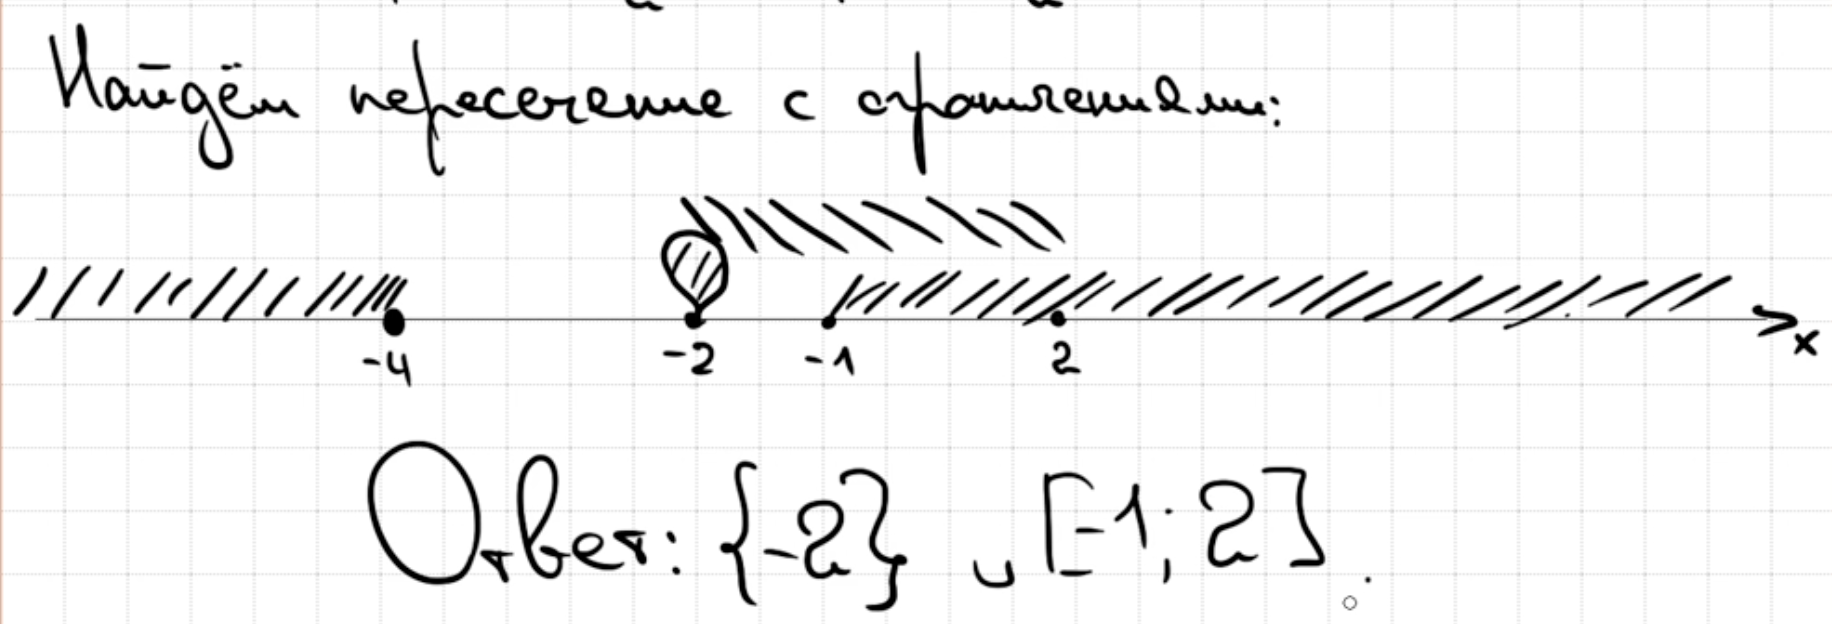 Найдём пересечение с ограничениями:
-4 -2 -1 2 x
Ответ: {-2} ∪ [-1; 2].